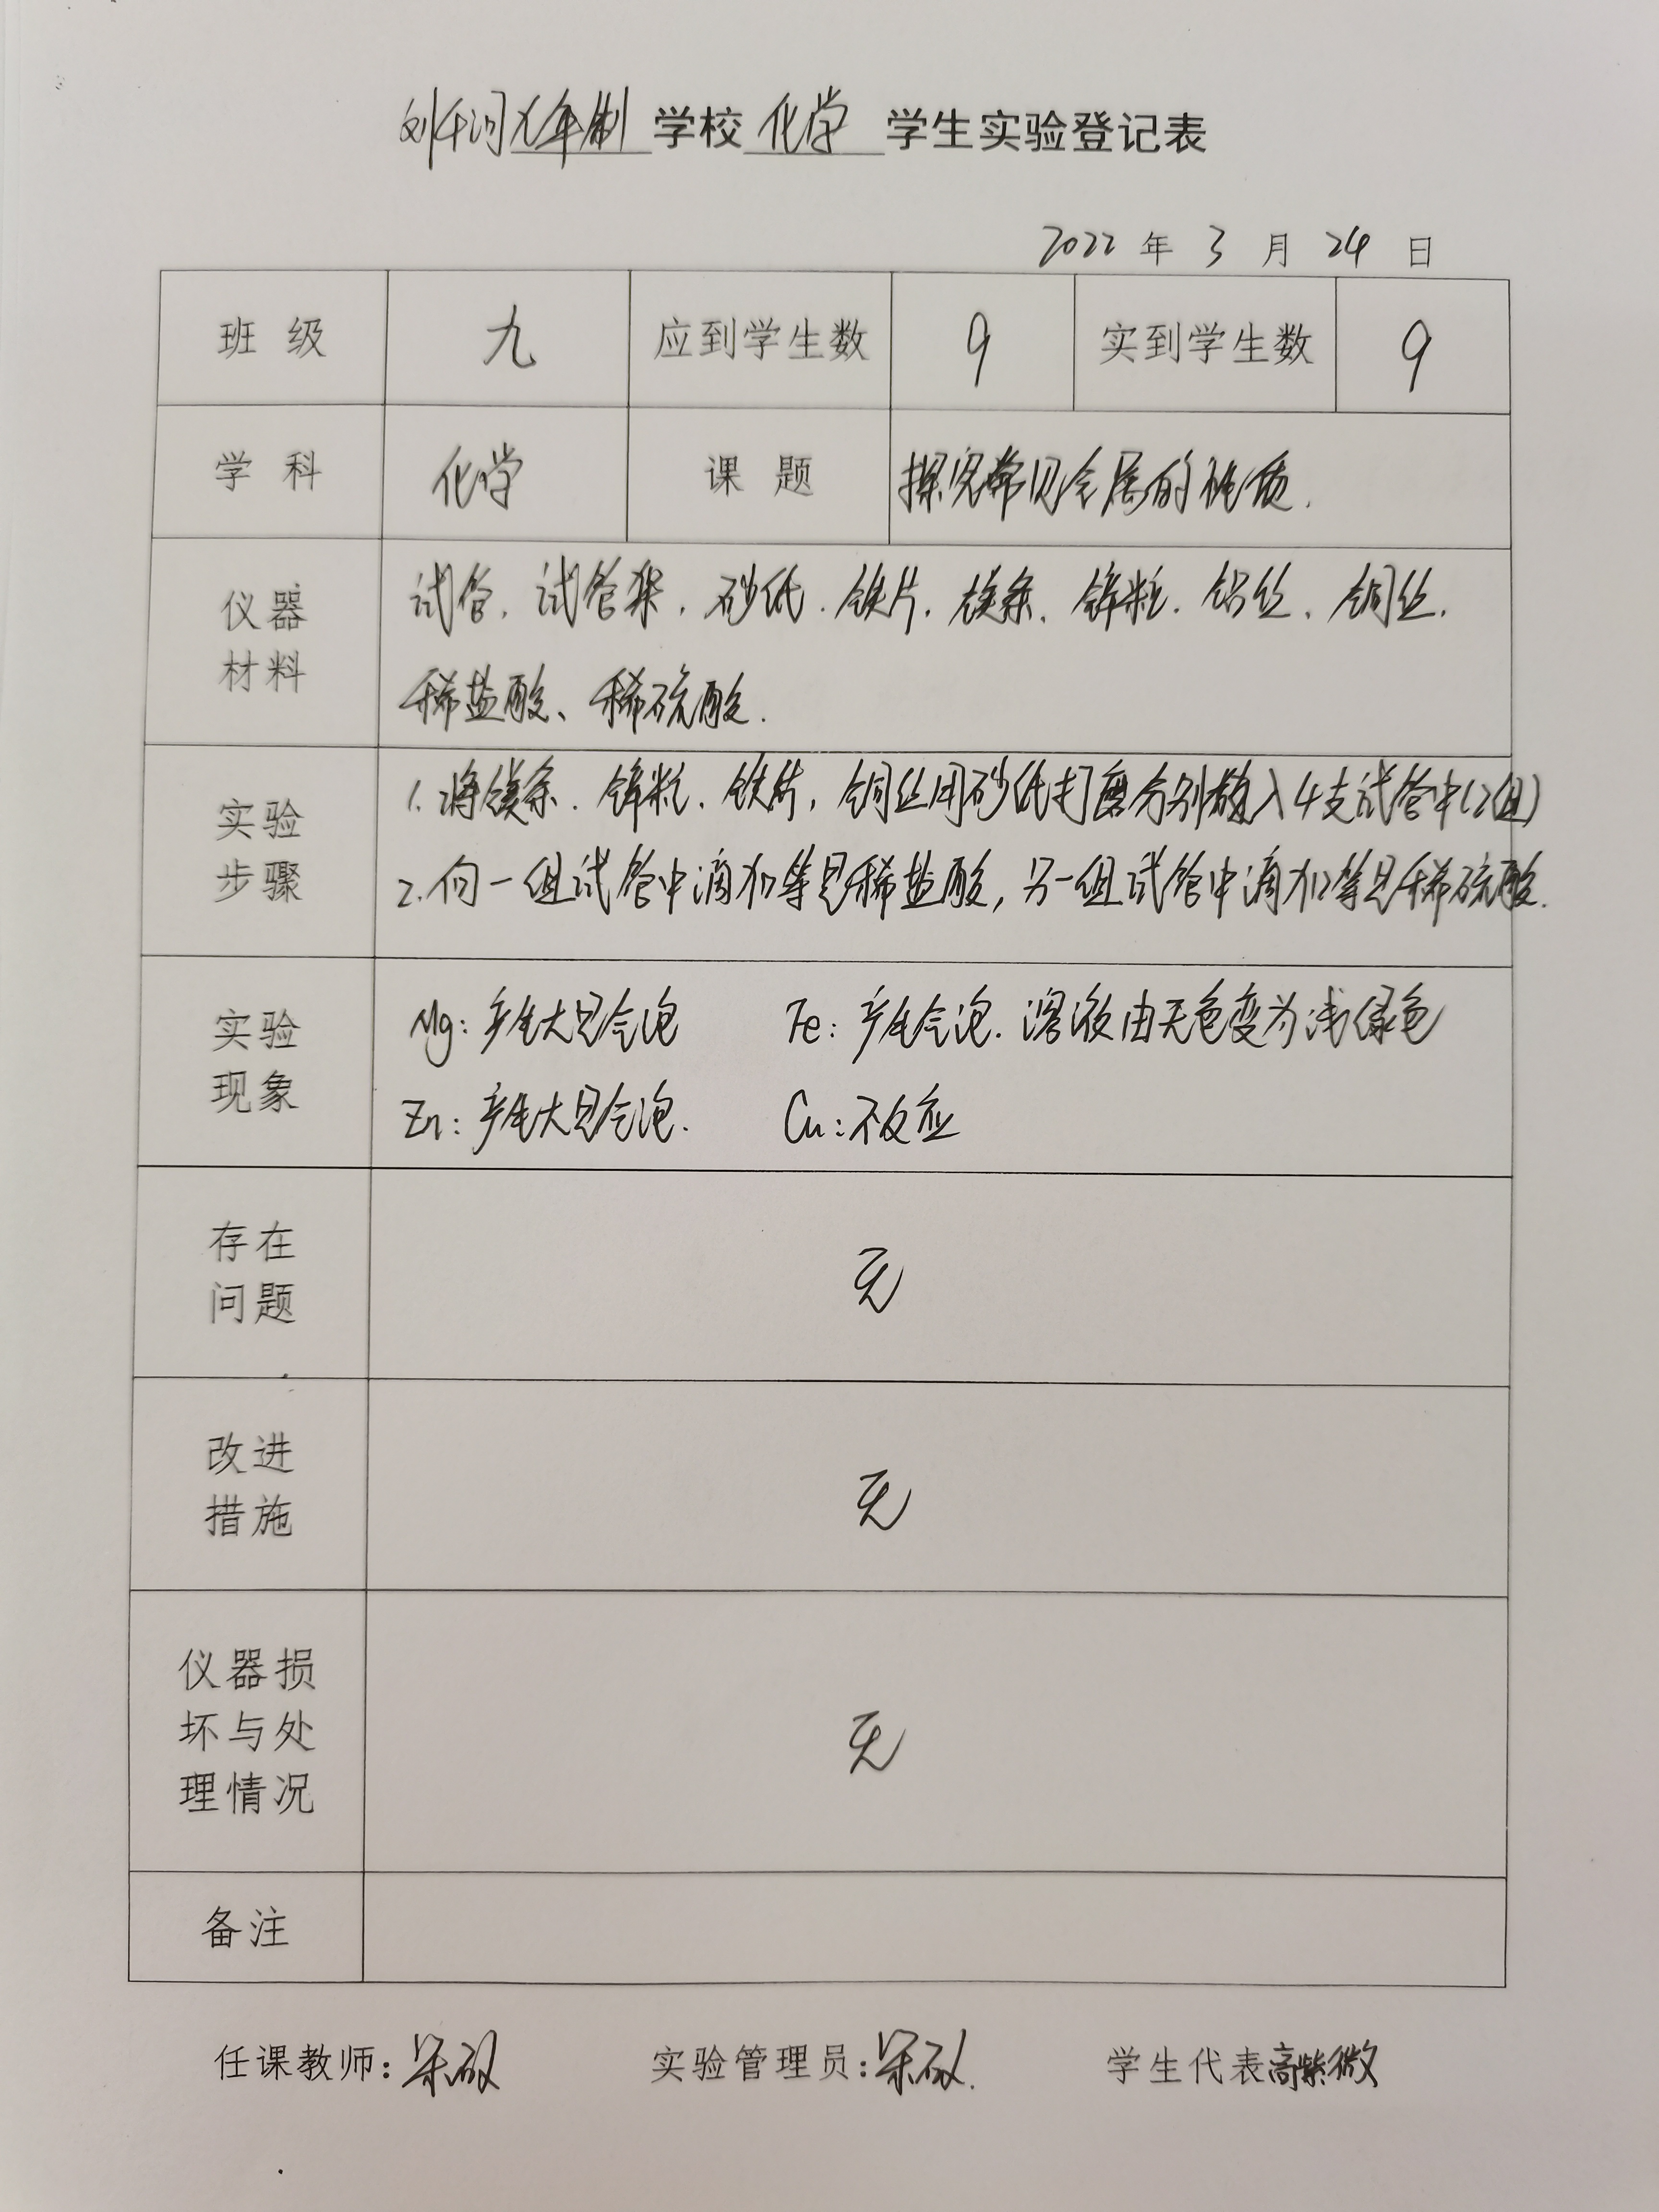 九年制学校化学学生实验登记表
2022年3月24日
班级 九 应到学生数 9 实到学生数 9
学科 化学 课题 探究常见金属的性质.
仪器材料
试管、试管架、砂纸、铁片、镁条、锌粒、铝丝、铜丝、
稀盐酸、稀硫酸.
实验步骤
1.将镁条、锌粒、铁片、铜丝用砂纸打磨分别放入4支试管中(2组)
2.向一组试管中滴加等量稀盐酸,另一组试管中滴加等量稀硫酸.
实验现象
Mg:产生大量气泡 Fe:产生气泡.溶液由无色变为浅绿色
Zn:产生大量气泡. Cu:不反应
存在问题
无
改进措施
无
仪器损坏与处理情况
无
备注
任课教师: 实验管理员: 学生代表高紫微